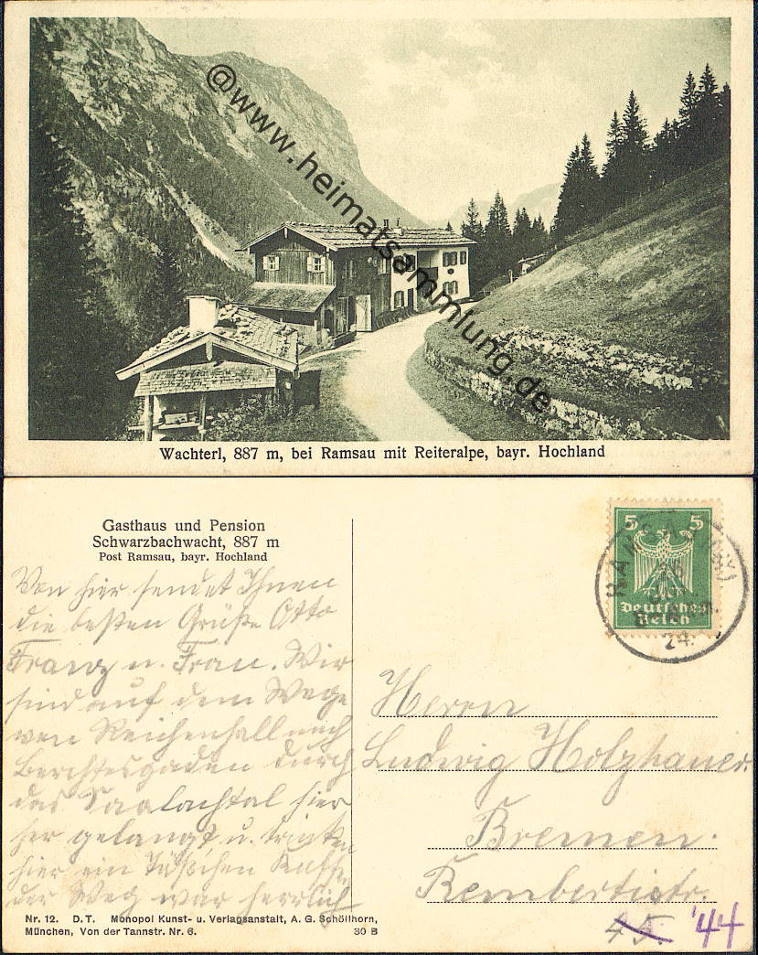 @www.heimatsammlung.de
Wachterl, 887 m, bei Ramsau mit Reiteralpe, bayr. Hochland
Gasthaus und Pension
Schwarzbachwacht, 887 m
Post Ramsau, bayr. Hochland
Von hier sendet Ihnen
die besten Grüße Otto
Franz u. Frau. Wir
sind auf dem Wege
von Reichenhall nach
Berchtesgaden durch
das Saalachtal hier
her gelangt u. trinken
hier ein Täßchen Kaffee
der Weg war herrlich
Nr. 12. D.T. Monopol Kunst- u. Verlagsanstalt, A. G. Schöllhorn,
München, Von der Tannstr. Nr. 6. 30 B
5 5
Deutsches
Reich
RAMSAU
24.
Herrn
Ludwig Holzhauer.
Bremen.
Rembertistr.
45. '44